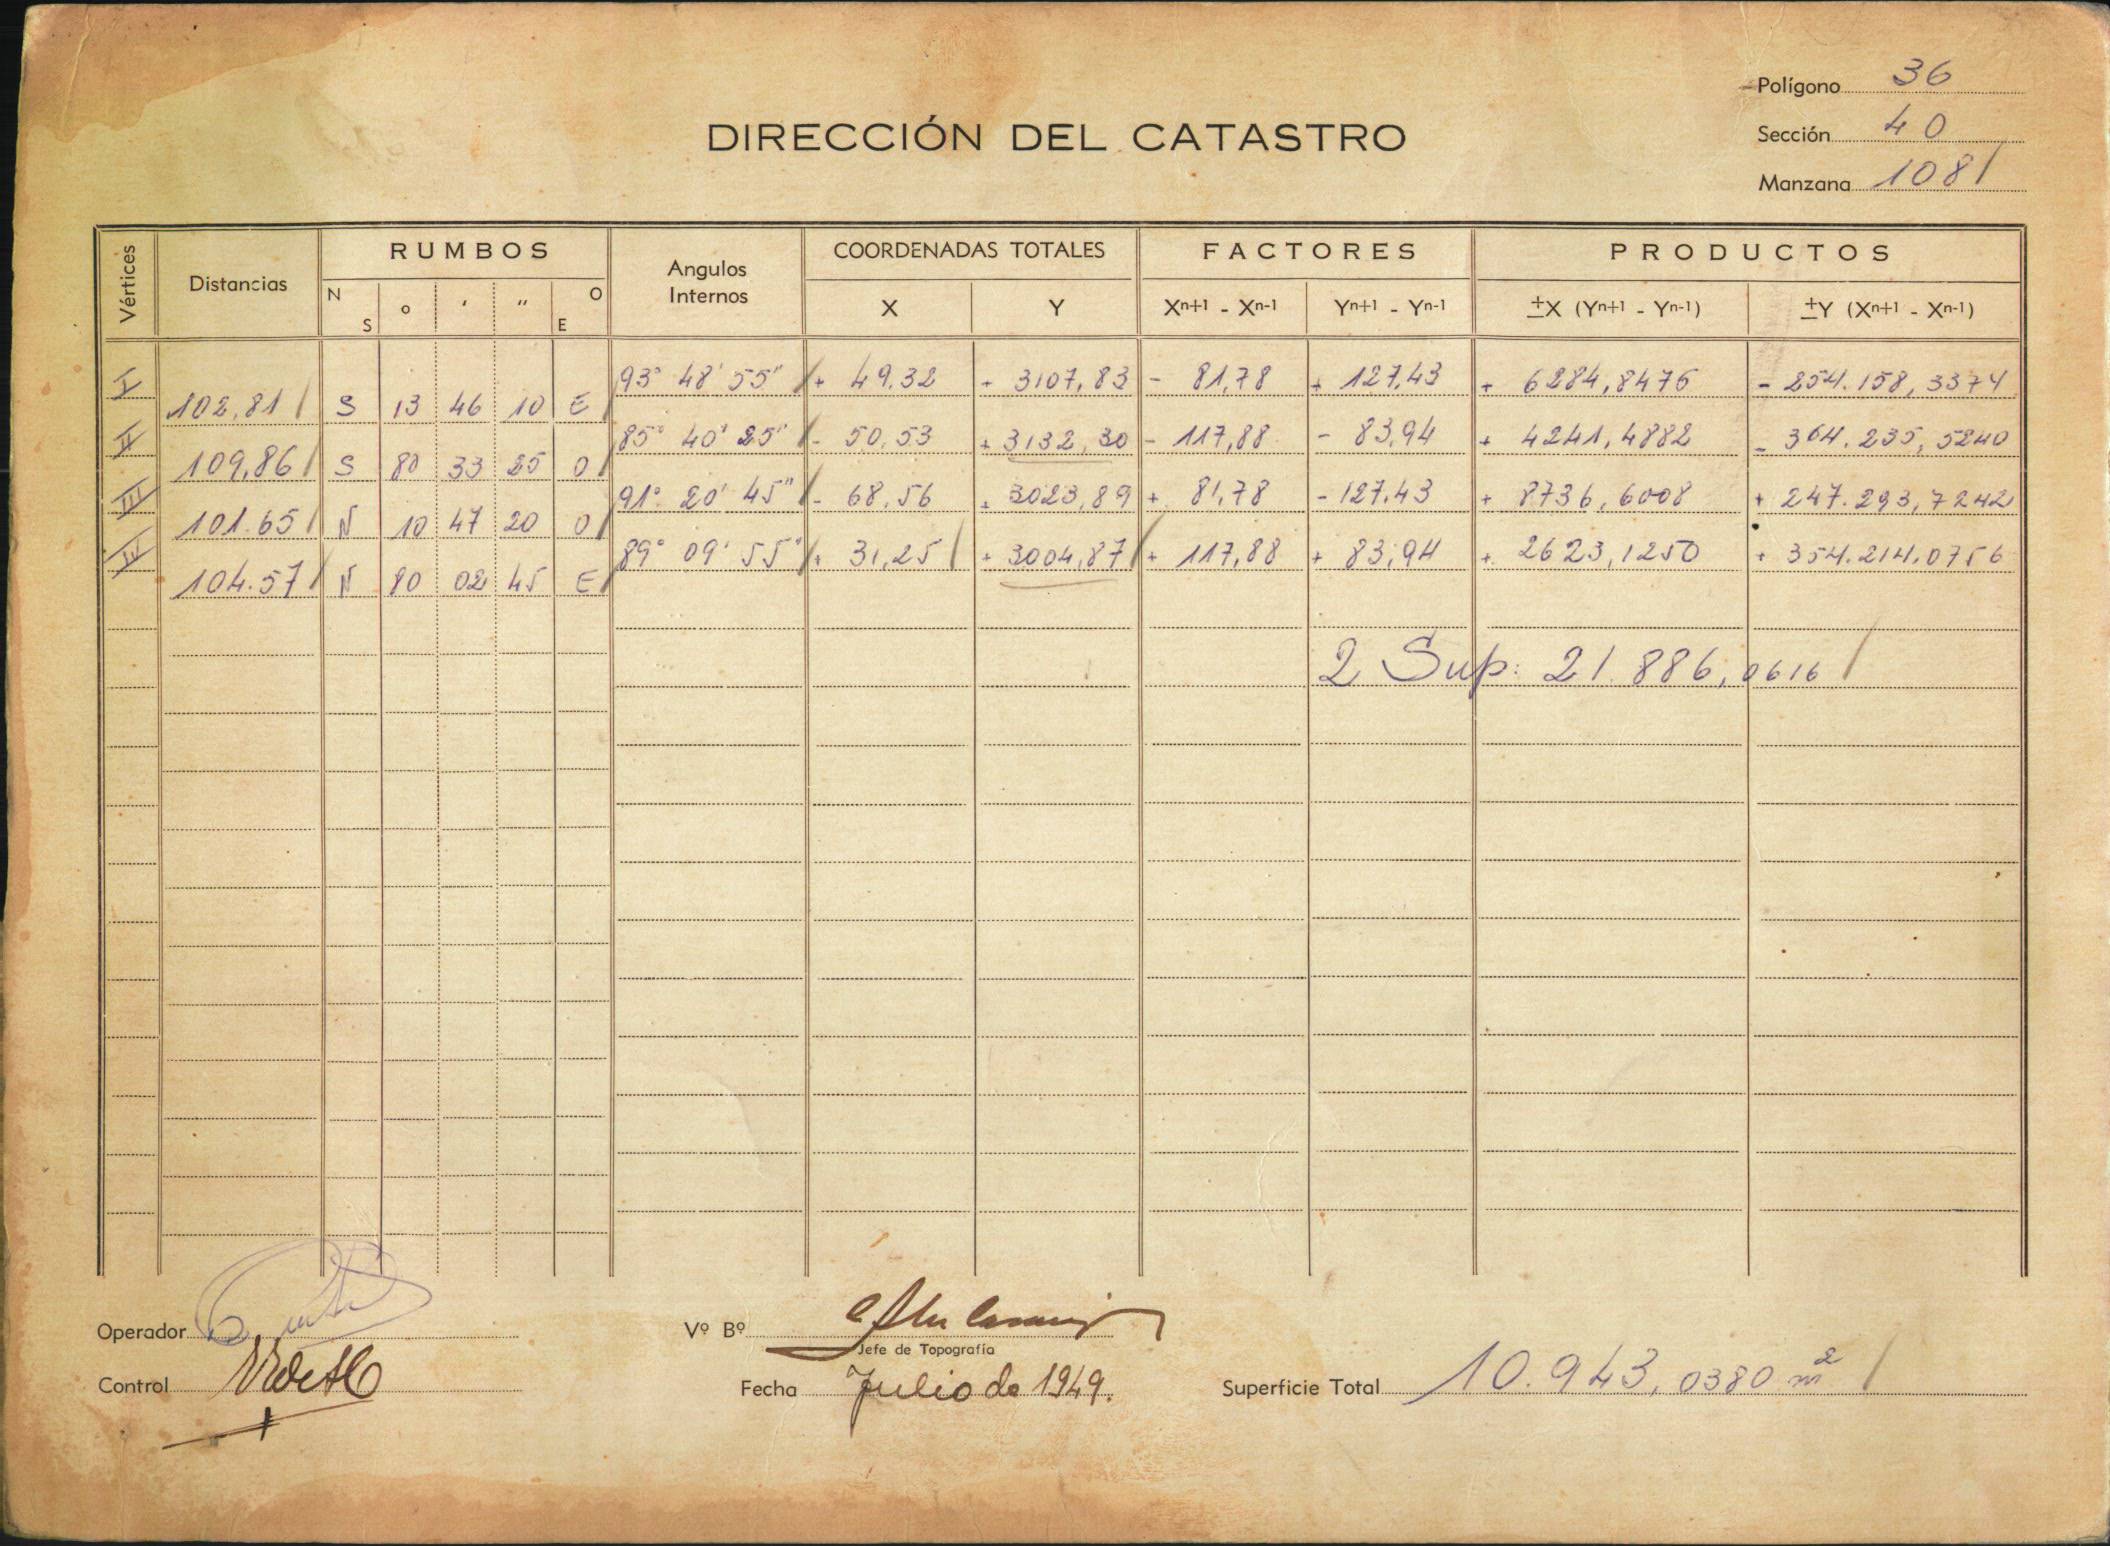 Polígono 36
DIRECCIÓN DEL CATASTRO
Sección 40
Manzana 108
Vértices Distancias RUMBOS Angulos Internos COORDENADAS TOTALES FACTORES PRODUCTOS
N S o ' " O E X Y Xn+1 - Xn-1 Yn+1 - Yn-1 ±X (Yn+1 - Yn-1) ±Y (Xn+1 - Xn-1)
I 93° 48' 55" + 49.32 + 3107,83 - 81,78 + 127,43 + 6284,8476 - 254.158,3374
102,81 S 13 46 10 E
II 85° 40' 25" - 50.53 + 3132,30 - 117,88 - 83,94 + 4241,4882 - 364.235,5240
109,86 S 80 33 25 O
III 91° 20' 45" - 68,56 + 3023,89 + 81,78 - 127,43 + 8736,6008 + 247.293,7242
101.65 N 10 47 20 O
IV 89° 09' 55" + 31,25 + 3004,87 + 117,88 + 83,94 + 2623,1250 + 354.214,0756
104.57 N 80 02 45 E
2 Sup: 21.886,0616
Operador
Vº Bº
Jefe de Topografía
Control
Fecha Julio de 1949.
Superficie Total 10.943,0380 m²